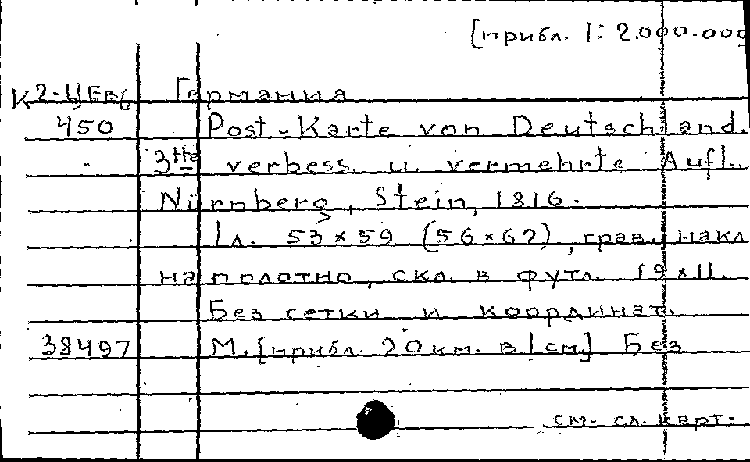 [прибл. 1: 2.000.000
К2-ЦЕв6 Германия
450 Post-Karte von Deutschland.
3tte verbess. u. vermehrte Aufl.
Nürnberg, Stein, 1816.
1л. 53×59 (56×62), грав., накл
на полотно, скл. в футл. 19×11.
Без сетки и координат.
38497 М. [прибл. 20 км. в 1 см.] Без
см. сл. карт.